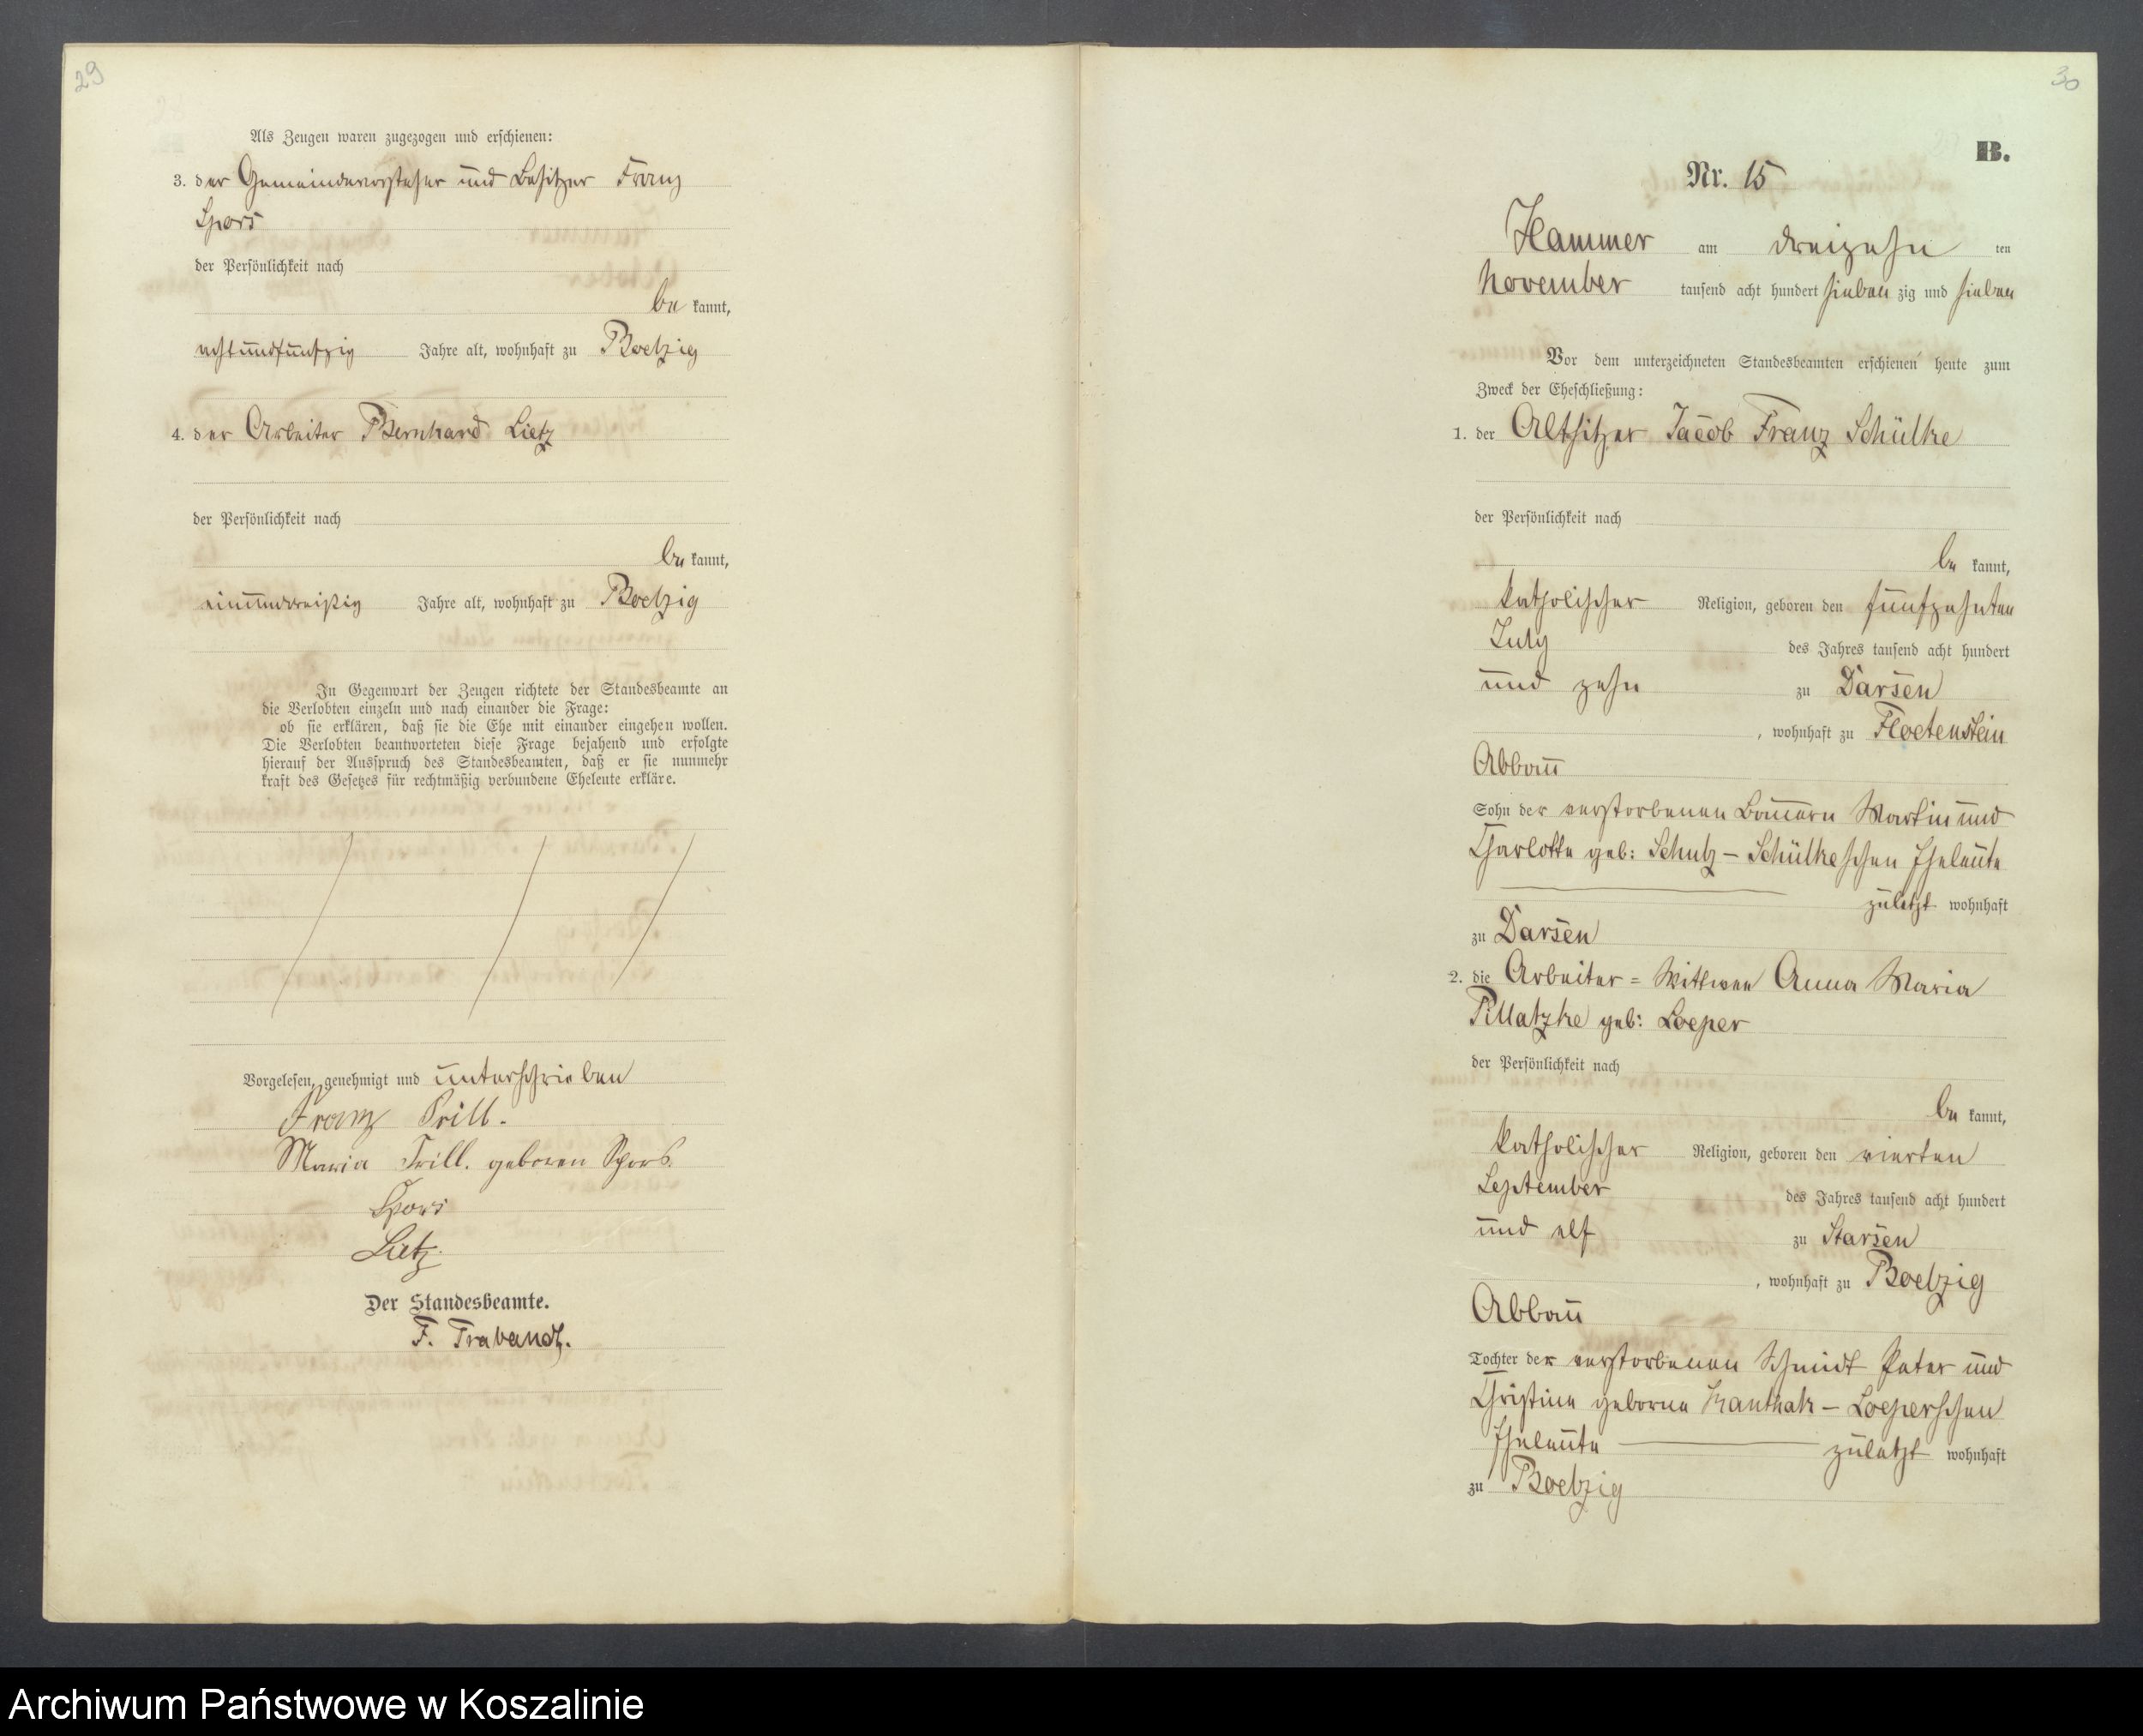 29
Als Zeugen waren zugezogen und erschienen:
3. der Gemeindevorsteher und Besitzer Franz
Spors
der Persönlichkeit nach
be kannt,
achtundfünfzig Jahre alt, wohnhaft zu Boelzig
4. der Arbeiter Bernhard Lietz
der Persönlichkeit nach
be kannt,
einunddreißig Jahre alt, wohnhaft zu Boelzig
In Gegenwart der Zeugen richtete der Standesbeamte an
die Verlobten einzeln und nach einander die Frage:
ob sie erklären, daß sie die Ehe mit einander eingehen wollen.
Die Verlobten beantworteten diese Frage bejahend und erfolgte
hierauf der Ausspruch des Standesbeamten, daß er sie nunmehr
kraft des Gesetzes für rechtmäßig verbundene Eheleute erkläre.
Vorgelesen, genehmigt und unterschrieben
Franz Prill.
Maria Prill. geboren Spors.
Spors
Lietz.
Der Standesbeamte.
F. Trabandt.
30
B.
Nr. 15
Hammer am dreizehn ten
November tausend acht hundert sieben zig und sieben
Vor dem unterzeichneten Standesbeamten erschienen heute zum
Zweck der Eheschließung:
1. der Altsitzer Jacob Franz Schülke
der Persönlichkeit nach
be kannt,
katholischer Religion, geboren den fünfzehnten
July des Jahres tausend acht hundert
und zehn zu Darsen
, wohnhaft zu Floetenstein
Abbau
Sohn der verstorbenen Bauern Martin und
Charlotte geb: Schulz – Schülkeschen Eheleute
zuletzt wohnhaft
zu Darsen
2. die Arbeiter = Wittwe Anna Maria
Pillatzke geb: Loeper
der Persönlichkeit nach
be kannt,
katholischer Religion, geboren den vierten
September des Jahres tausend acht hundert
und elf zu Starsen
, wohnhaft zu Boelzig
Abbau
Tochter der verstorbenen Schmidt Peter und
Christine geborne Kanthak – Loeperschen
Eheleute zuletzt wohnhaft
zu Boelzig
Archiwum Państwowe w Koszalinie